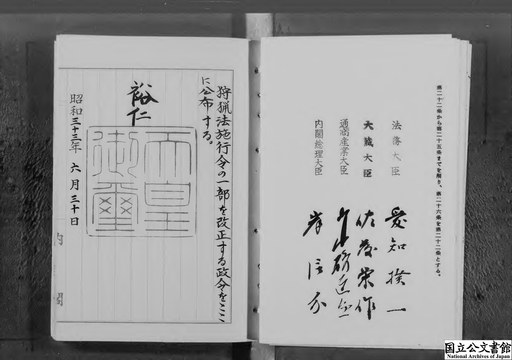 第二十二条から第二十五条までを削り、第二十六条を第二十二条とする。
法務大臣 愛知揆一
大蔵大臣 佐藤栄作
通商産業大臣 高碕達之助
内閣総理大臣 岸信介
狩猟法施行令の一部を改正する政令をここ
に公布する。
裕仁
天皇
御璽
昭和三十三年六月三十日
内閣
国立公文書館
National Archives of Japan